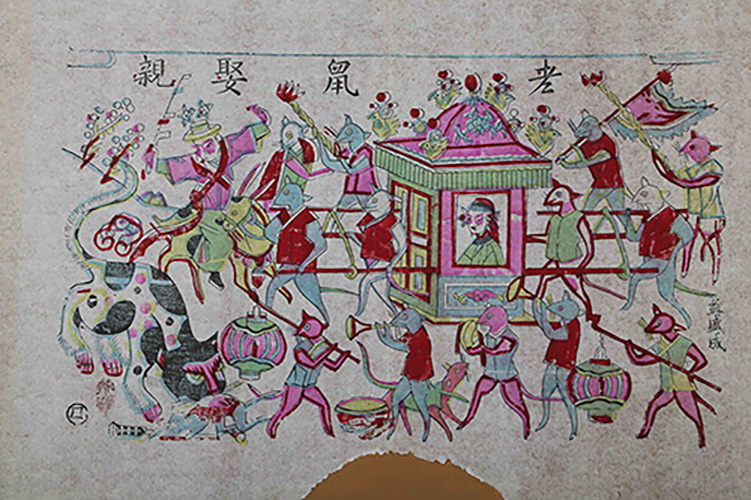 老鼠娶親
盛成